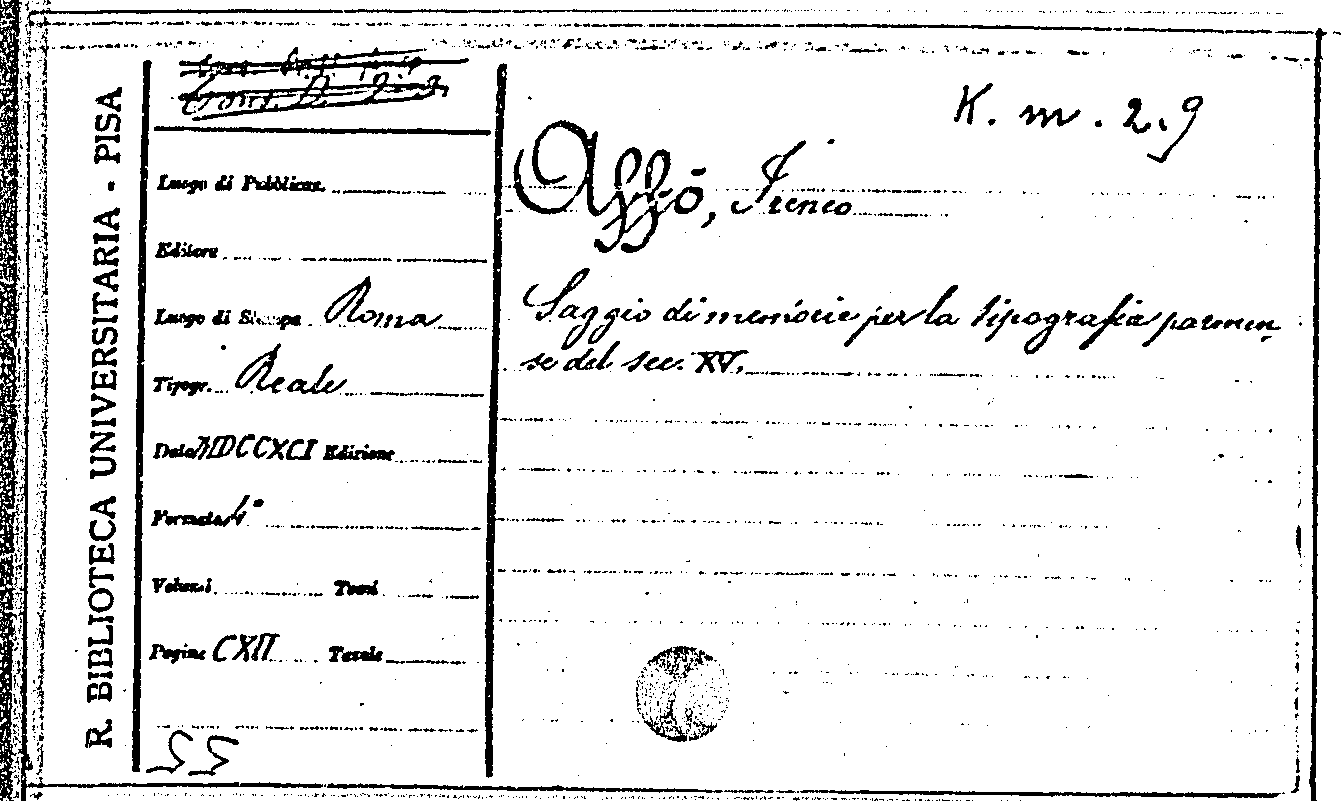 R. BIBLIOTECA UNIVERSITARIA - PISA
K. m. 2.9
Affò, Ireneo
Saggio di memorie per la tipografia parmen-
se del sec. XV.
Luogo di Pubblicaz.
Editore
Luogo di Stampa Roma
Tipogr. Reale
Data MDCCXCI Edizione
Formato 4°
Volumi Tomi
Pagine CXII Tavole
55